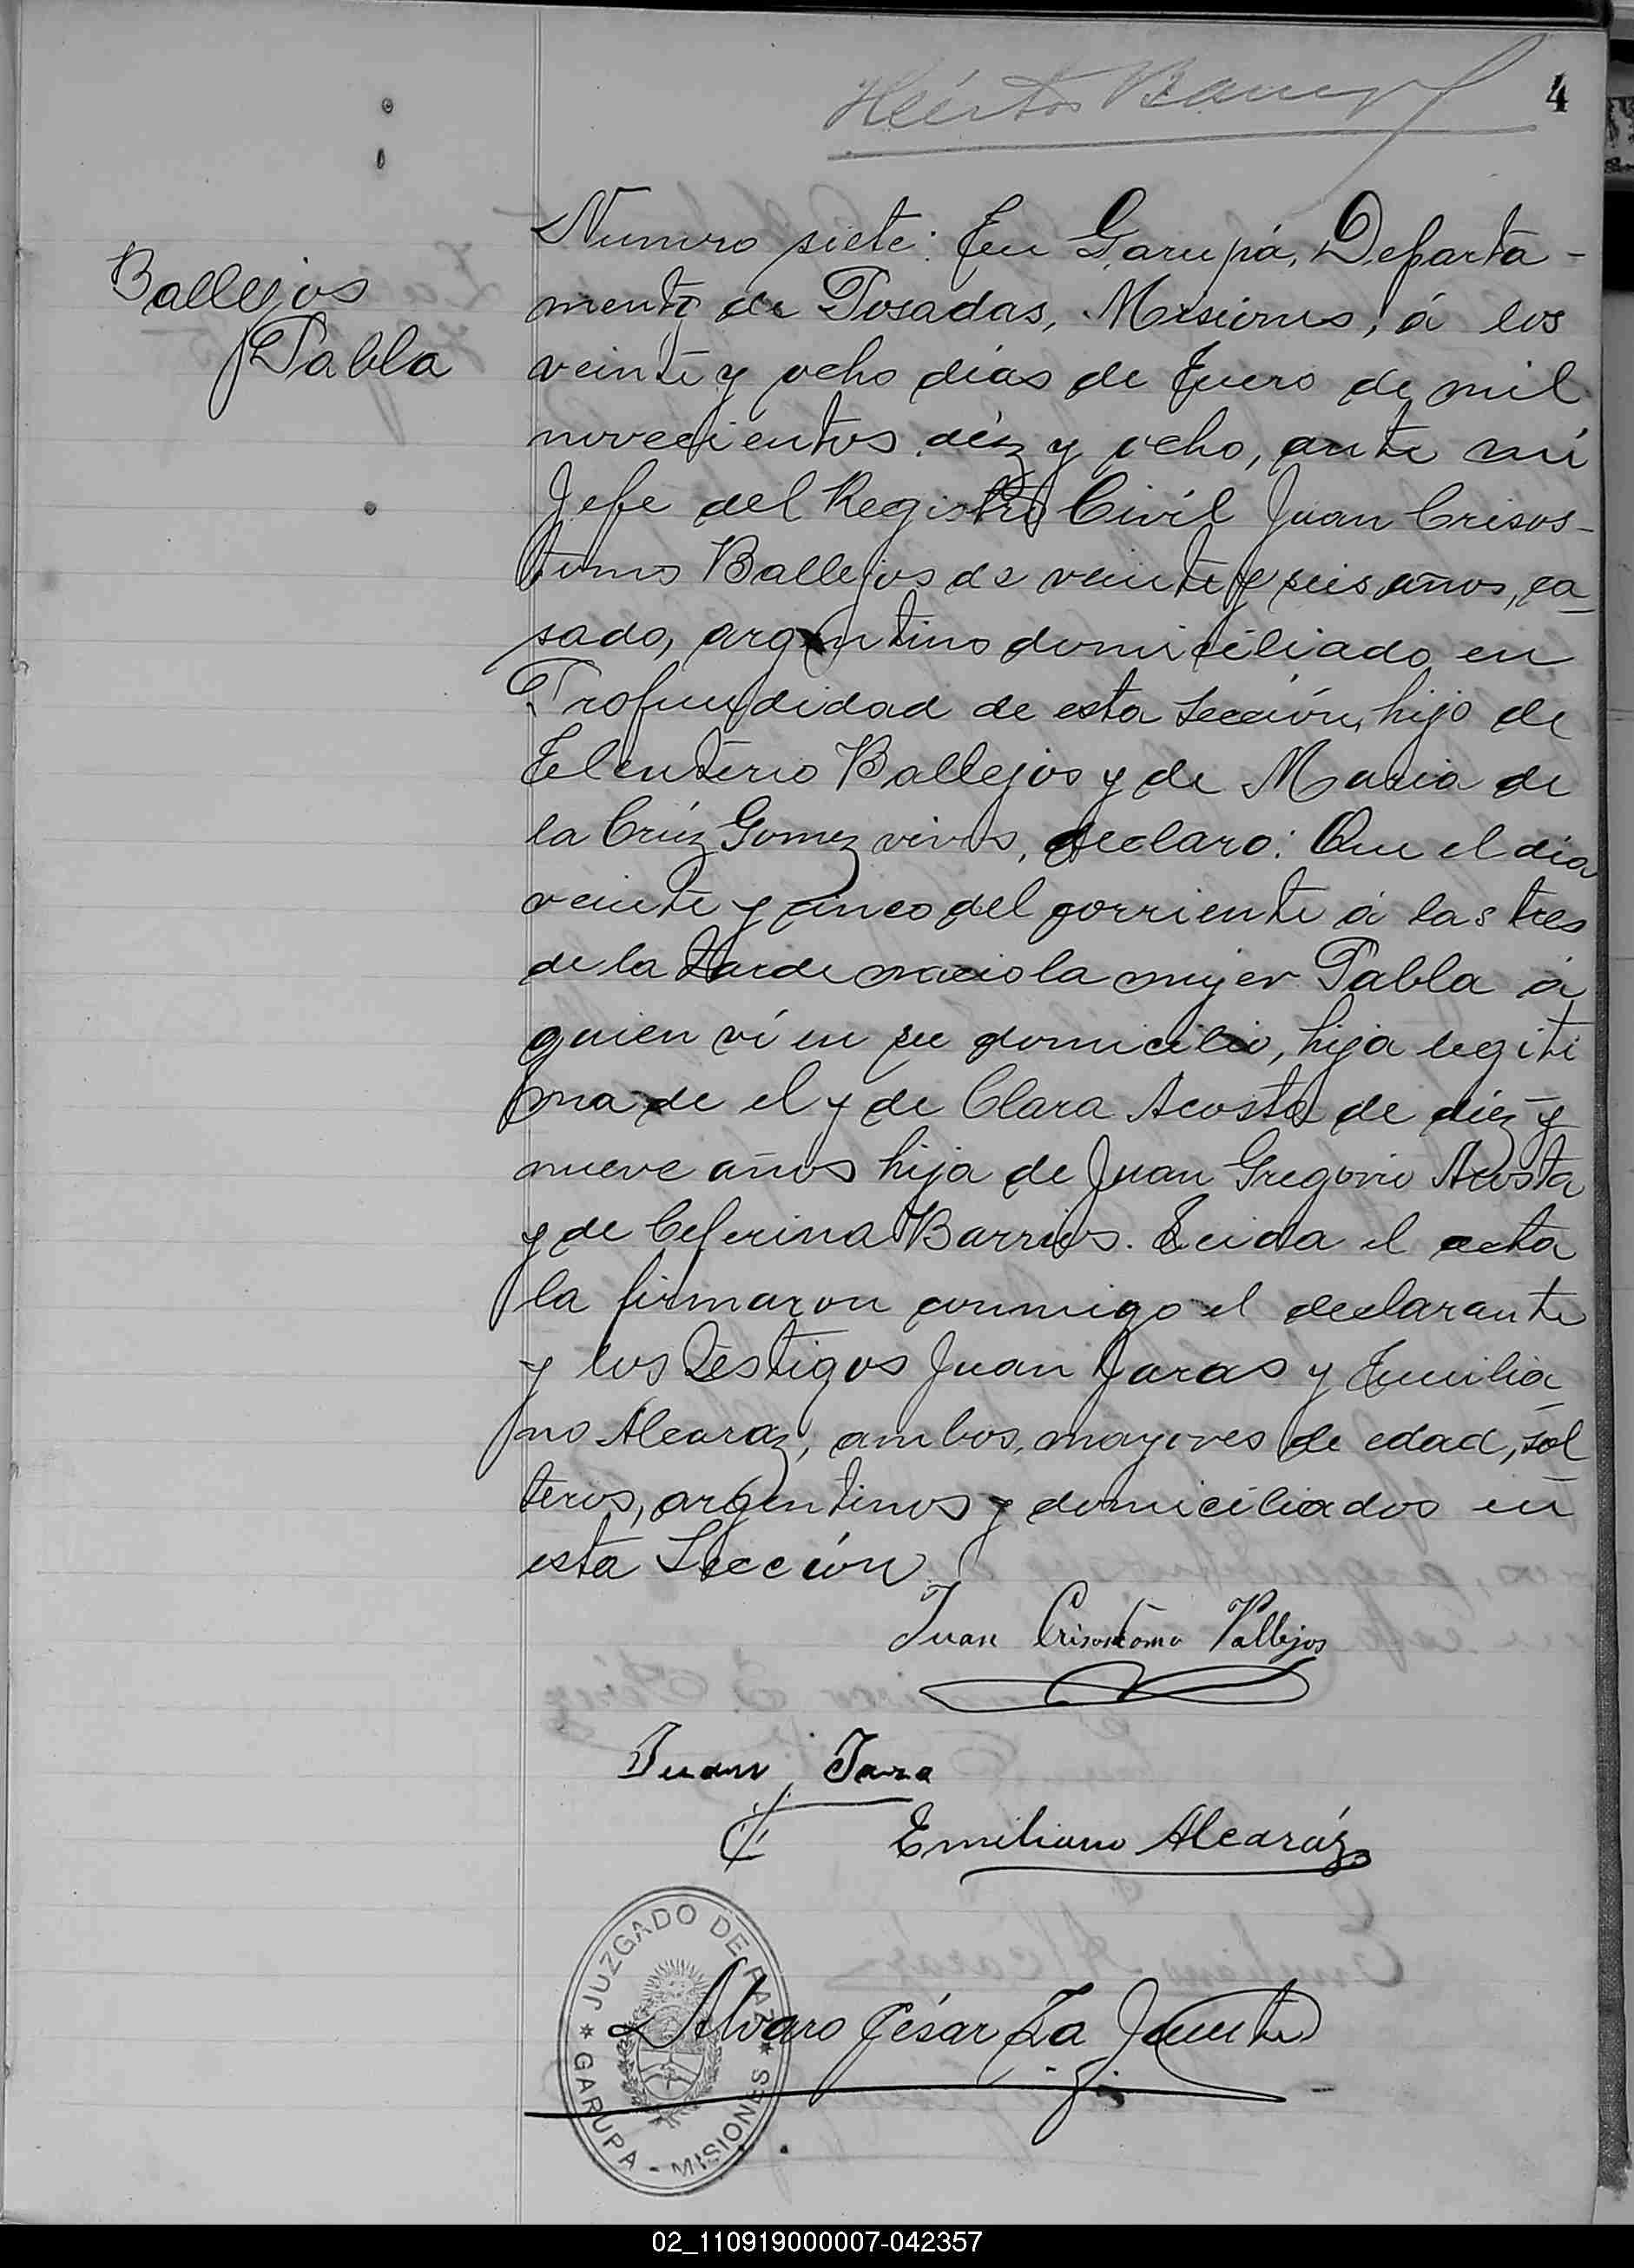 4
Ballejos
Pabla
Numero siete: En Garupá, Departa-
mento de Posadas, Misiones, á los
veinte y ocho dias de Enero de mil
novecientos diez y ocho, ante mi
Jefe del Registro Civil Juan Crisos-
tomo Ballejos de veinte y seis años, ca-
sado, argentino domiciliado en
Profundidad de esta Sección, hijo de
Eleuterio Ballejos y de Maria de
la Crúz Gomez vivos, declaro: Que el dia
veinte y cinco del corriente á las tres
de la tarde nacio la mujer Pabla á
quien ví en su domicilio, hija legiti
ma de el y de Clara Acosta de diez y
nueve años hija de Juan Gregorio Acosta
y de Ceferina Barrios. Leida el acta
la firmaron conmigo el declarante
y los testigos Juan Jaras y Emilia-
no Alcaraz, ambos, mayores de edad, sol-
teros, argentinos y domiciliados en
esta Sección
Juan Crisostomo Vallejos
Juan Jara
Emiliano Alcaráz
JUZGADO DE PAZ
Alvaro César La
GARUPA - MISIONES
02_110919000007-042357